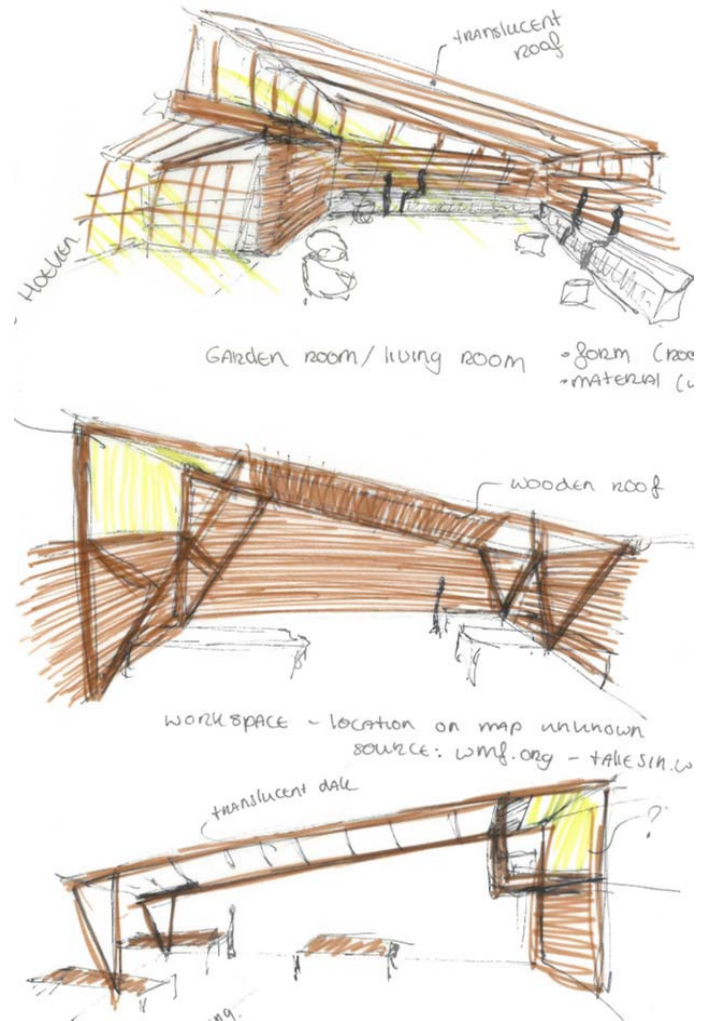 TRANSLUCENT
ROOF
HOEKEN
GARDEN ROOM / LIVING ROOM
• FORM (ROO
• MATERIAL (
WOODEN ROOF
WORKSPACE - LOCATION ON MAP UNKNOWN
SOURCE: WMF.ORG - TALIESIN.W
TRANSLUCENT DAK
?
ng.